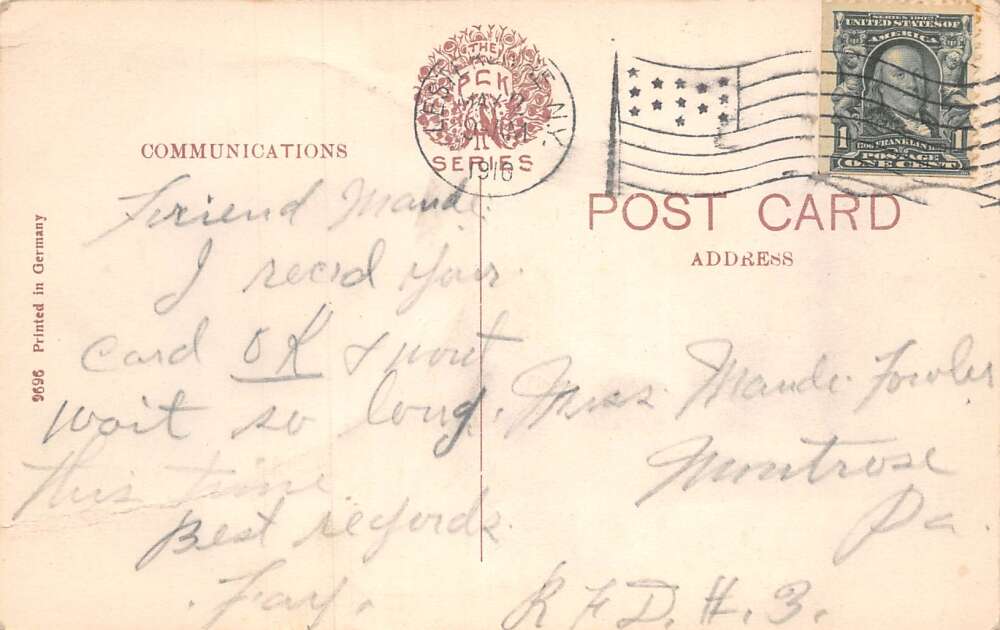 THE
PCK
SERIES
MAY 2
9 AM
1916
N.Y.
SERIES 1902
UNITED STATES OF
AMERICA
1706 FRANKLIN 1790
POSTAGE
1 ONE CENT 1
COMMUNICATIONS
POST CARD
ADDRESS
9696 Printed in Germany
Friend Maude.
I recd your
card OK & wont
wait so long.
this time
Best regards.
Fay.
Miss Maude Fowler
Montrose
Pa.
R F D. #. 3.